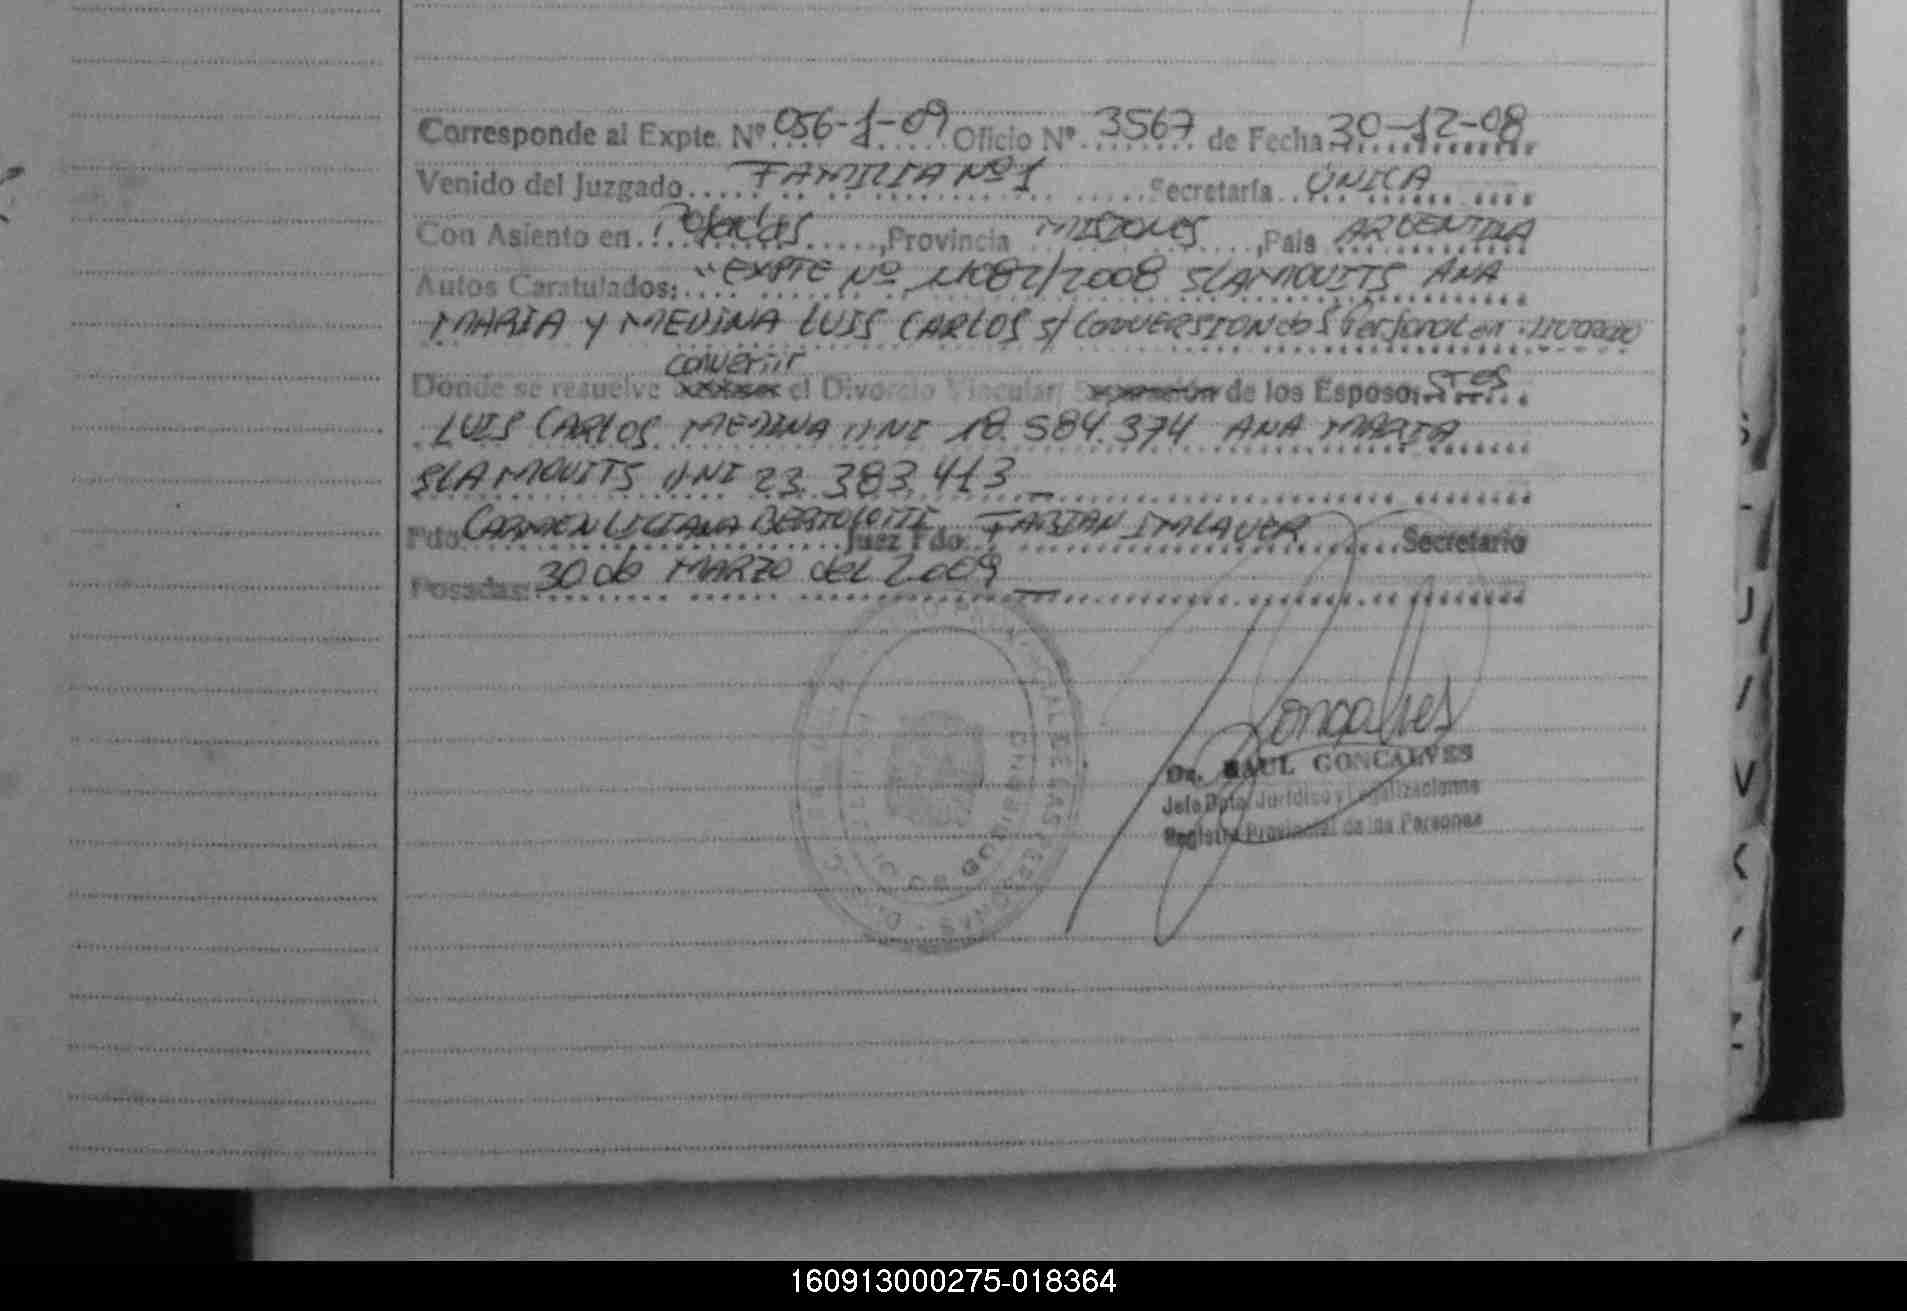 Corresponde al Expte. Nº 056-1-09 Oficio Nº 3567 de Fecha 30-12-08
Venido del Juzgado FAMILIA Nº 1 Secretaría ÚNICA
Con Asiento en Posadas, Provincia MISIONES, País ARGENTINA
Autos Caratulados: "EXPTE Nº 11082/2008 SLAMOVITS ANA
MARIA Y MEDINA LUIS CARLOS S/ CONVERSION de S Personal en
convertir
Donde se resuelve el Divorcio Vincular/ Separación de los Esposo: STES
LUIS CARLOS MEDINA DNI 18.584.374 ANA MARIA
SLAMOVITS DNI 23.383.413
Fdo. CARMEN LILIANA Juez Fdo. FABIAN Secretario
Posadas: 30 de MARZO del 2009
Goncalves
Dr. RAUL GONCALVES
Jefe Dpto. Jurídico y Legalizaciones
Registro Provincial de las Personas
160913000275-018364